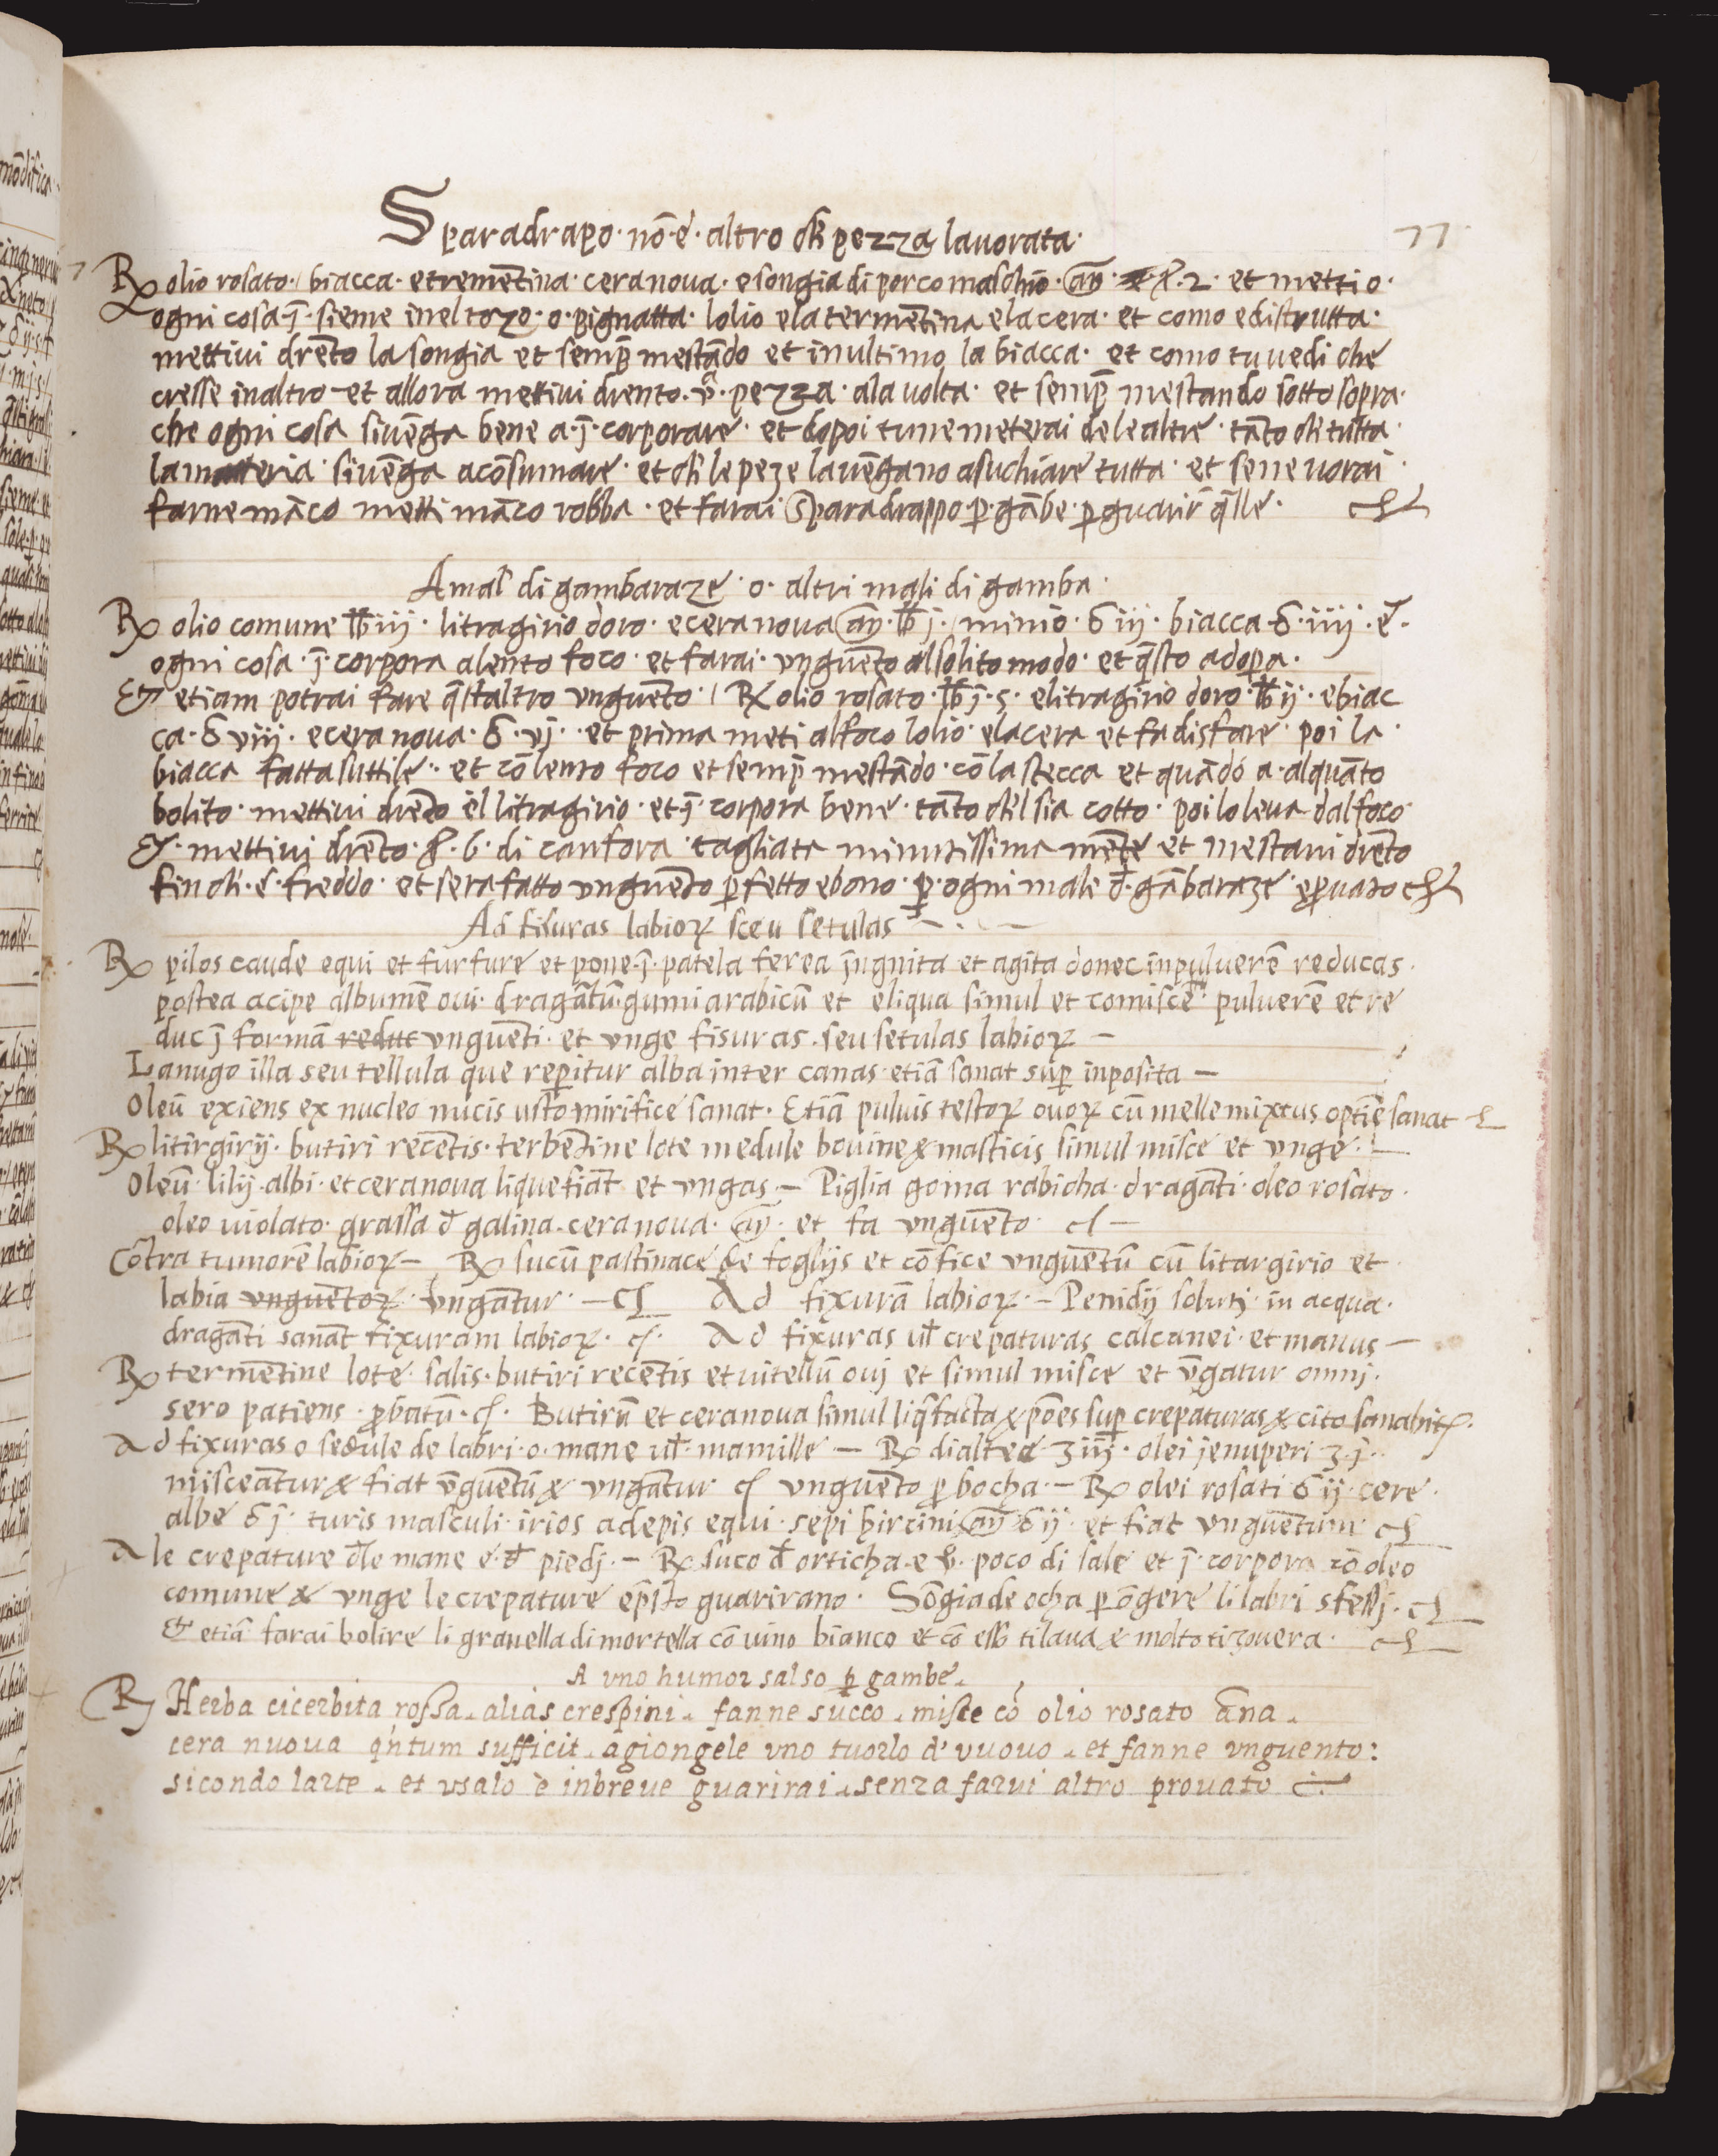 Sparadrapo · nō · é · altro ch pezza lauorata ·
77
℞ olio rosato · biacca · etremētina · cera noua · esongia di porco maschio · añ · ℥ · 2 · et metti o ·
ogni cosa · j̄ · sieme inel tozo · o · pignatta · lolio ela termētina ela cera · et como edistrutta ·
mettiui drēto la songia et semp̄ mestādo et in ultimo la biacca · et como tu uedi che
cresse in altro et allora mettiui drento · vª · pezza · ala uolta · et semp̄ mestando sotto sopra ·
che ogni cosa siuēga bene a · j̄ · corporare · et dopoi tu ne meterai dele altre · tāto ch tutta ·
la materia · siuēga acōsumare · et ch le peze la uēgano asuchiare tutta · et se ne uorai ·
farne māco metti māco robba · et farai sparadrappo · p · gābe · p guarir̄ q̄lle ·
A mal di gambaraze · o · altri mali di gamba ·
℞ olio comune ℔ iij · litragirio doro · e cera noua añ · ℔ j · minio · ℥ iij · biacca · ℥ · iiij · é ·
ogni cosa · j̄ · corpora alento foco · et farai · vnguēto al solito modo · et q̄sto adopa ·
Et etiam potrai fare q̄staltro vnguēto · | ℞ olio rosato · ℔ j · s · elitragirio doro · ℔ ij · ebiac
ca · ℥ viij · e cera noua · ℥ · vj · et prima meti al foco lolio · ela cera et fa disfare · poi la ·
biacca fatta suttile · et cō lento foco et semp̄ mestādo · cō la stecca et quādo a · alquāto
bolito · mettiui drēto el litragirio · et j̄ · corpora bene · tāto ch'l sia cotto · poi lo leua dal foco ·
Et · mettiui drēto · ℥ · 6 · di canfora · tagliata minutissima mēte et mestaui drēto
fin ch · é · freddo · et sera fatto vnguēto pfetto e bono · p · ogni male d · gābaraze · e puato
Ad fisuras labioꝝ seeu setulas
℞ pilos caude equi et furfure et pone · j̄ · patela ferea j̄ngnita et agita donec in puluerē reducas ·
postea acipe albumē oui · dragātū · gumi arabicū et eliqua simul et comisce · puluerē et re
duc j̄ formā reduc vnguēti · et vnge fisuras · seu setulas labioꝝ –
Lanugo illa seu tellula que repitur alba inter canas · etiā sanat sup inposita –
Oleū exiens ex nucleo nucis usto mirifice sanat · Etiā puluis testoꝝ ouoꝝ cū melle mixtus optie sanat
℞ litirgirij · butiri recētis · terbētine lote medule bouine & masticis simul misce et vnge ·
Oleū · lilij · albi · et cera noua liquefiāt et vngas · – Piglia goma rabicha · dragāti · oleo rosato ·
oleo uiolato · grassa đ galina · cera noua · añ · et fa vnguēto ·
Cōtra tumorē labioꝝ – ℞ sucū pastinace de foglijs et cōfice vnguētū cū litargirio et
labia vnguētoꝝ · vngātur · – Ad fixurā labioꝝ · – Penidij solutj · in acqua ·
dragāti sanāt fixuram labioꝝ · Ad fixuras ul̄ crepaturas calcanei · et manus –
℞ termētine lote · salis · butiri recētis et uitellū ouj et simul misce et v̄gatur omnj ·
sero patiens · pbatū · Butirū et cera noua simul liq̄facta & pōes sup crepaturas & cito sanabit ·
Ad fixuras o sedule de labri · o · mane ul̄ · mamille – ℞ dialtea · ʒ iij · olei jenuperi ʒ · j ·
misceātur & fiat v̄guētū & vngātur vnguēto p bocha · – ℞ olei rosati ℥ ij · cere ·
albe ℥ j · turis masculi · irios adepis equi · sepi hircini añ ℥ ij · et fiat vnguentum
Ale crepature d̄le mane é · đ piedj · – ℞ suco đ orticha · e vº · poco di sale et j̄ · corpora cō oleo
comune & vnge le crepature e p̄sto guarirano · Sōgia de ocha p ōgere li labri fessj ·
Et etiā farai bolire li granella di mortella cō uino bianco et cō esso ti laua & molto ti giouera ·
A vno humor salso p gambe ·
℞ Herba cicerbita rossa · alias crespini · fanne succo · miste có olio rosato āna ·
cera nuoua q́ntum sufficit · agiongele vno tuorlo d' vuouo · et fanne vnguento :
sicondo larte · et vsalo è in breue guarirai · senza farui altro prouato